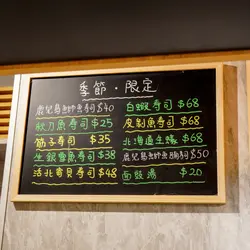 季節・限定
鹿兒島鰤魚壽司 $40
秋刀魚壽司 $25
筋子壽司 $35
生銀鱈魚壽司 $38
活北寄貝壽司 $48
白蝦壽司 $68
皮剝魚壽司 $68
北海道生蠔 $68
鹿兒島鰤魚腩壽司 $50
麵豉湯 $20